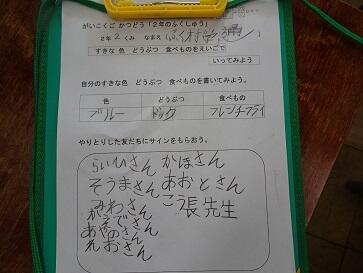 がいこくご かつどう 「2年のふくしゅう」
2年 2くみ なまえ
すきな 色 どうぶつ 食べものをえいごで
いってみよう。
自分のすきな 色 どうぶつ 食べものを書いてみよう。
色 どうぶつ 食べもの
ブルー ドッグ フレンチフライ
やりとりした友だちにサインをもらおう。
らいひさん かほさん
そうまさん あおとさん
みわさん こう張先生
かえでさん
あやのさん
れおさん